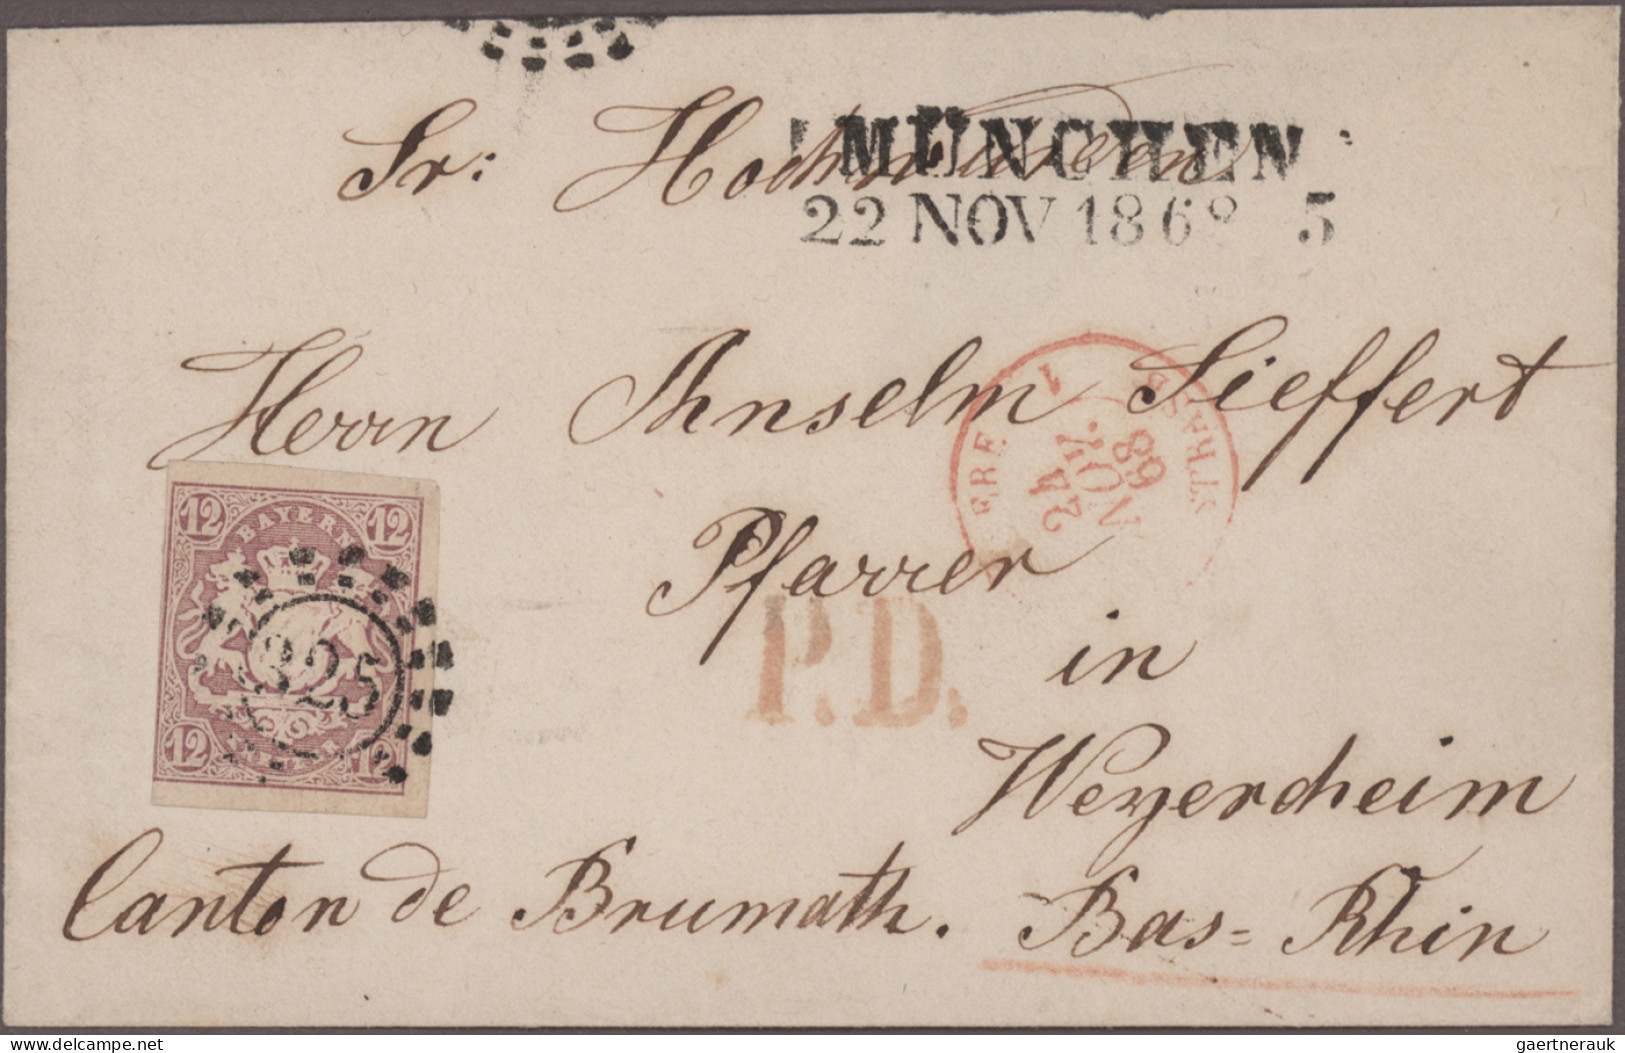 Sr: Hochwürden
MÜNCHEN
22 NOV 1868 5
Herrn Anselm Sieffert
24
NOV.
68
STRASB
ERE 1
12 BAYERN 12
325
12 12
Pfarrer
P.D.
in
Weyersheim
Canton de Brumath. Bas=Rhin
delcampe.net
gaertnerauk